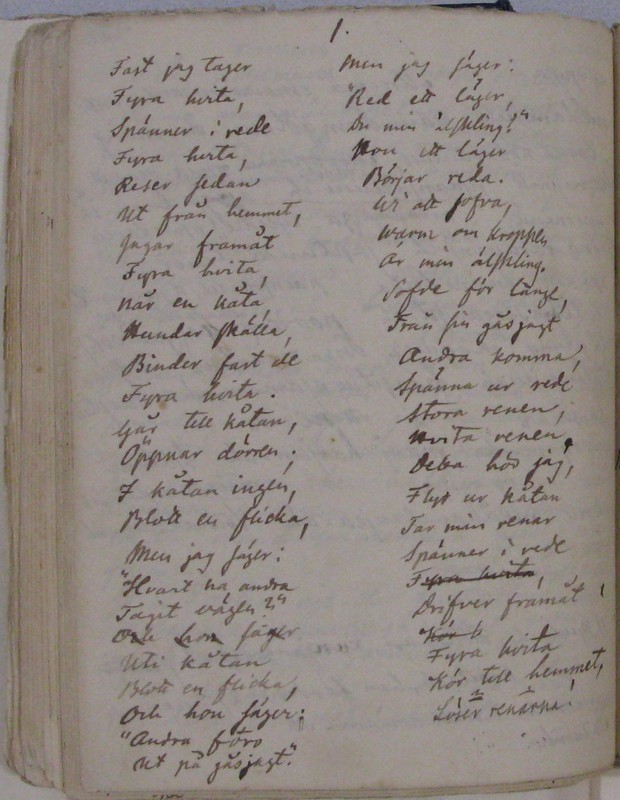 1.
Fast jag tager
Fyra hvita,
Spänner i rede
Fyra hvita,
Reser sedan
Ut från hemmet,
Jagar framåt
Fyra hvita,
När en kåta,
Hundar skälla,
Binder fast de
Fyra hvita.
Går till kåtan,
Öppnar dörren;
I kåtan ingen,
Blott en flicka,
Men jag säger:
"Hvart ha andra
Tagit vägen?"
Och hon säger
Uti kåtan
Blott en flicka,
Och hon säger:
"Andra foro
Ut på gåsjagt."
Men jag säger:
"Red ett läger,
Du min älskling!"
Hon ett läger
Börjar reda.
Vi att sofva,
Warm om kroppen
Är min älskling.
Sofde för länge,
Från sin gåsjagt
Andra komma,
Spänna ur rede
Stora renen,
Hvita renen.
Detta hör jag,
Flyr ur kåtan
Tar min renar
Spänner i rede
Fyra hvita,
Drifver framåt
Kör
Fyra hvita
Kör till hemmet,
Löser renarna!